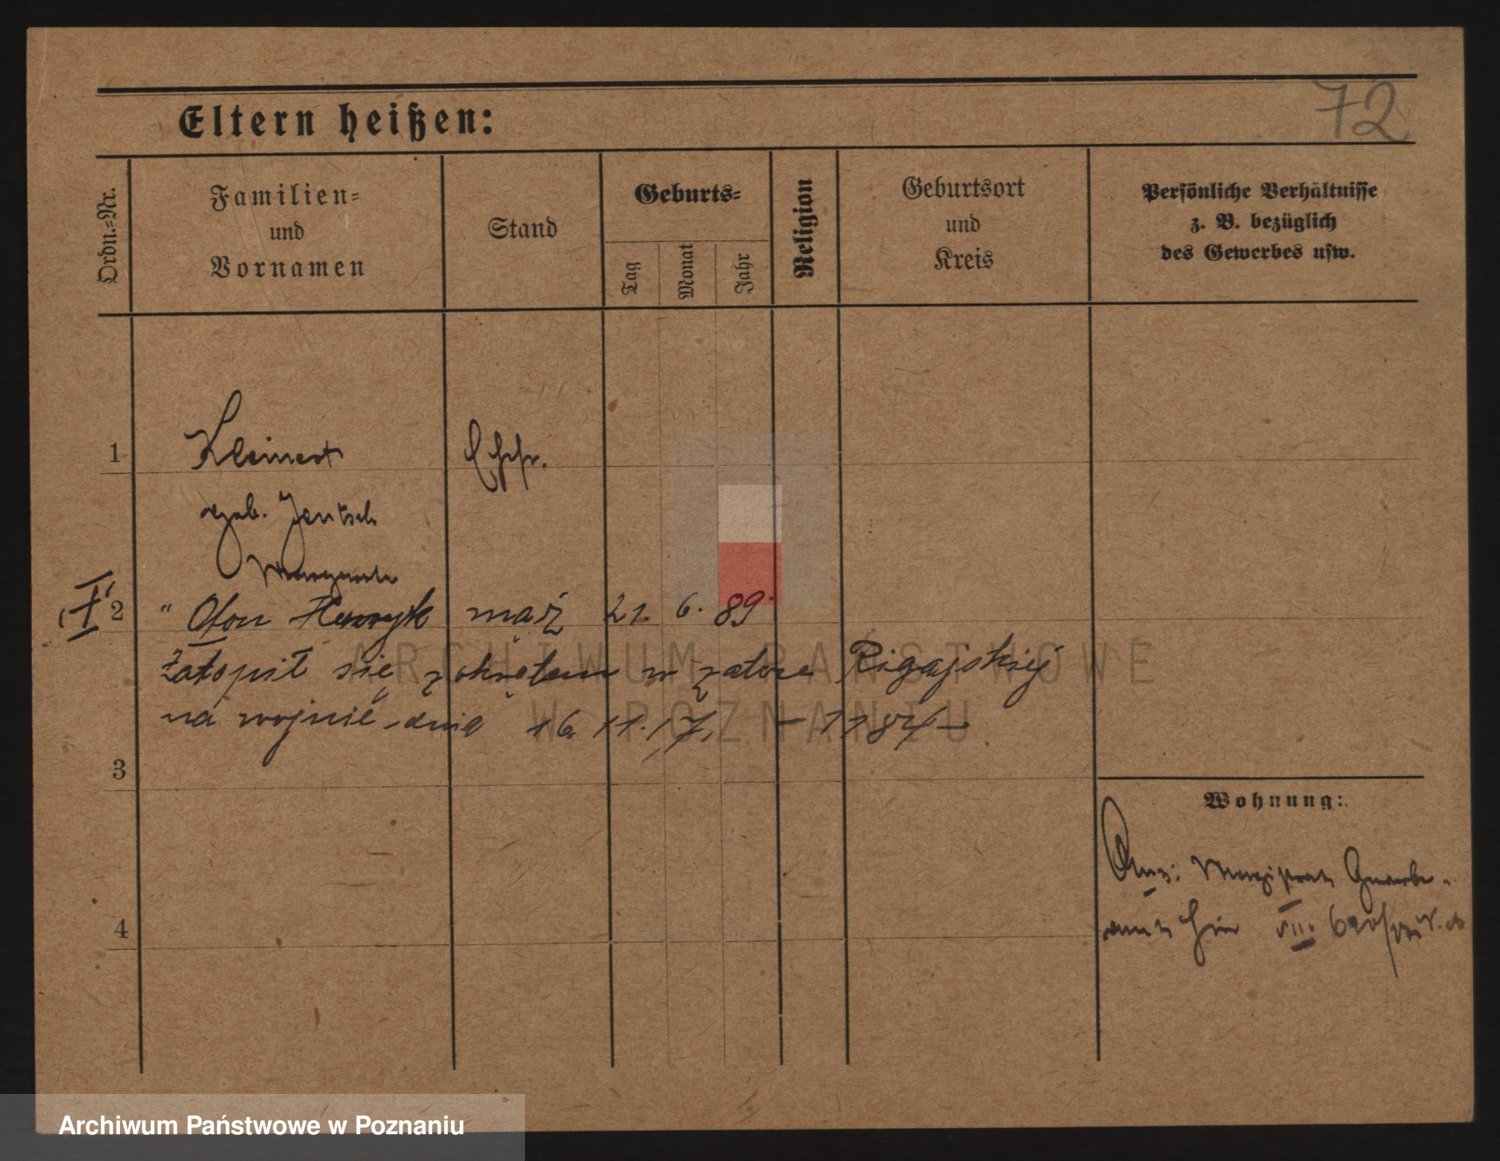 72
Eltern heißen:
Ordn.-Nr.
Familien-
und
Vornamen
Stand
Geburts-
Tag
Monat
Jahr
Religion
Geburtsort
und
Kreis
Persönliche Verhältnisse
z. B. bezüglich
des Gewerbes usw.
1 Kleinert Ehefr.
geb. Jentsch
Margarete
2 " Oton Henryk mąż 21. 6. 89.
Zatopił się z okrętem w zatoce Rigajskiej
na wojnie dnia 16 11. 17,
3
Wohnung:
Magistrats Gewerbe-
amt hier VII.
4
ARCHIWUM PAŃSTWOWE
W POZNANIU
Archiwum Państwowe w Poznaniu